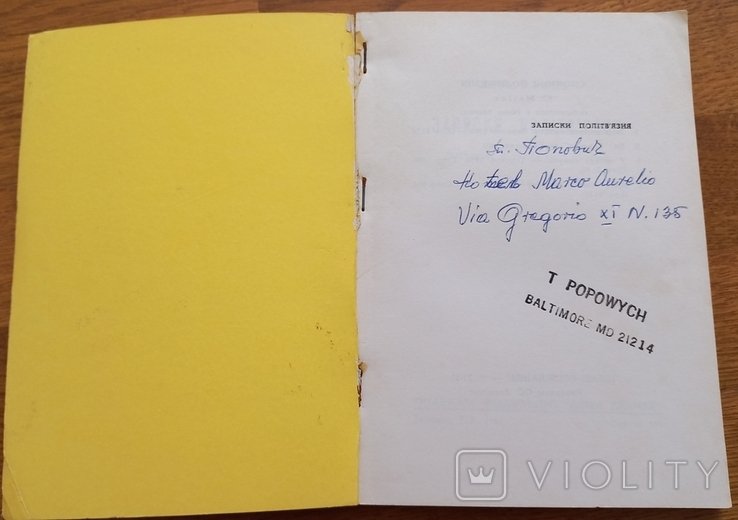 ЗАПИСКИ ПОЛІТВ'ЯЗНЯ
Попович
Marco Aurelio
Via Gregorio XI N. 135
T POPOWYCH
BALTIMORE MD 21214
VIOLITY